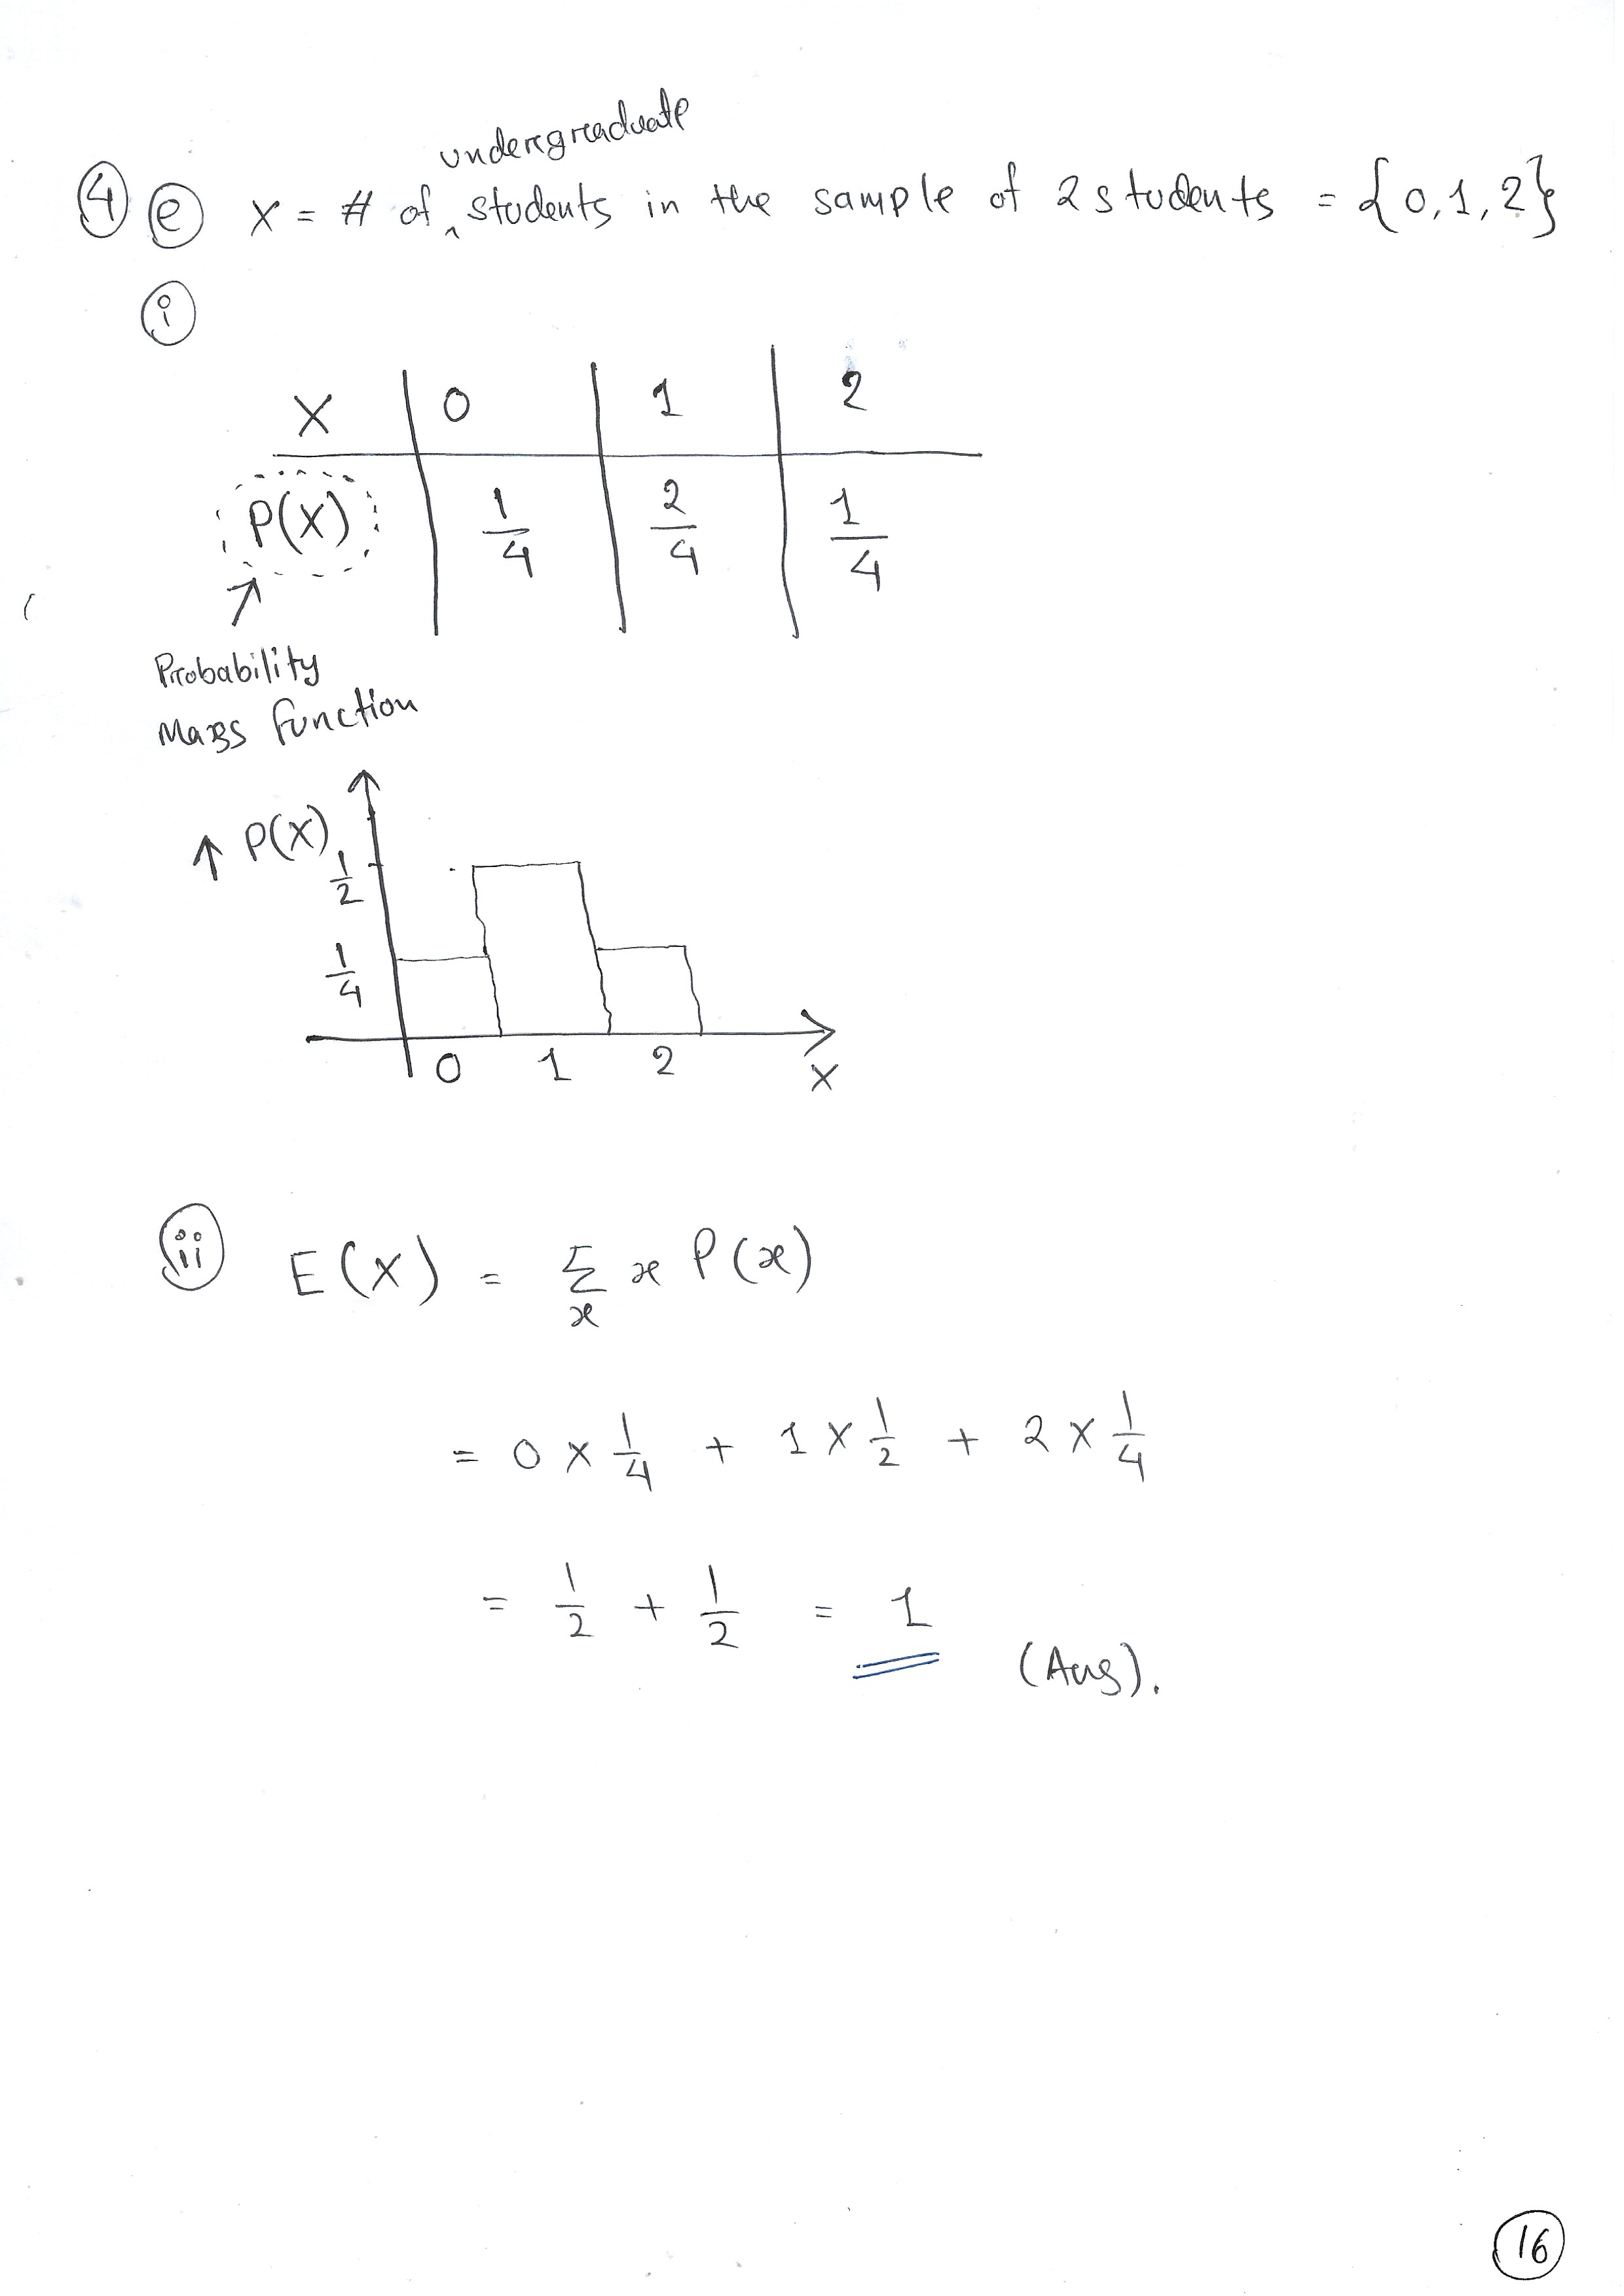 undergraduate
4 e X = # of ‸ students in the sample of 2 students = {0, 1, 2}
i
X 0 1 2
P(X) 1/4 2/4 1/4
↗
Probability
Mass function
↑ P(X)
1/2
1/4
0 1 2
X
ii E(X) = Σ x P(x)
x
= 0 × 1/4 + 1 × 1/2 + 2 × 1/4
= 1/2 + 1/2 = 1
(Ans).
16